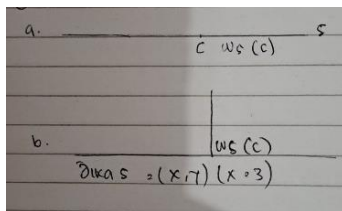 a. s
c ws (c)
b. ws (c)
Jika s = (x,7) (x.3)